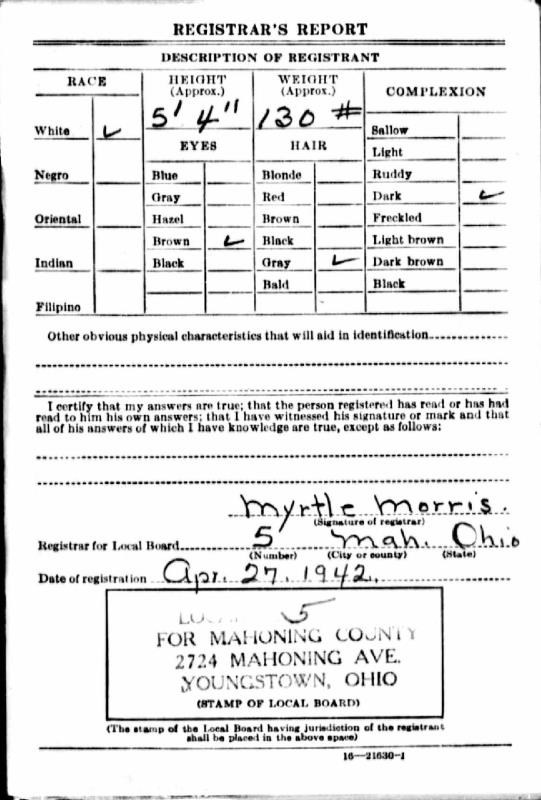 REGISTRAR'S REPORT
DESCRIPTION OF REGISTRANT
RACE
HEIGHT (Approx.)
WEIGHT (Approx.)
COMPLEXION
5' 4"
130 #
White ✓
EYES
HAIR
Sallow
Light
Negro
Blue
Blonde
Ruddy
Gray
Red
Dark ✓
Oriental
Hazel
Brown
Freckled
Brown ✓
Black
Light brown
Indian
Black
Gray ✓
Dark brown
Bald
Black
Filipino
Other obvious physical characteristics that will aid in identification
I certify that my answers are true; that the person registered has read or has had
read to him his own answers; that I have witnessed his signature or mark and that
all of his answers of which I have knowledge are true, except as follows:
Myrtle Morris.
(Signature of registrar)
Registrar for Local Board 5 Mah. Ohio
(Number) (City or county) (State)
Date of registration Apr. 27, 1942.
5
FOR MAHONING COUNTY
2724 MAHONING AVE.
YOUNGSTOWN, OHIO
(STAMP OF LOCAL BOARD)
(The stamp of the Local Board having jurisdiction of the registrant
shall be placed in the above space)
16—21630-1